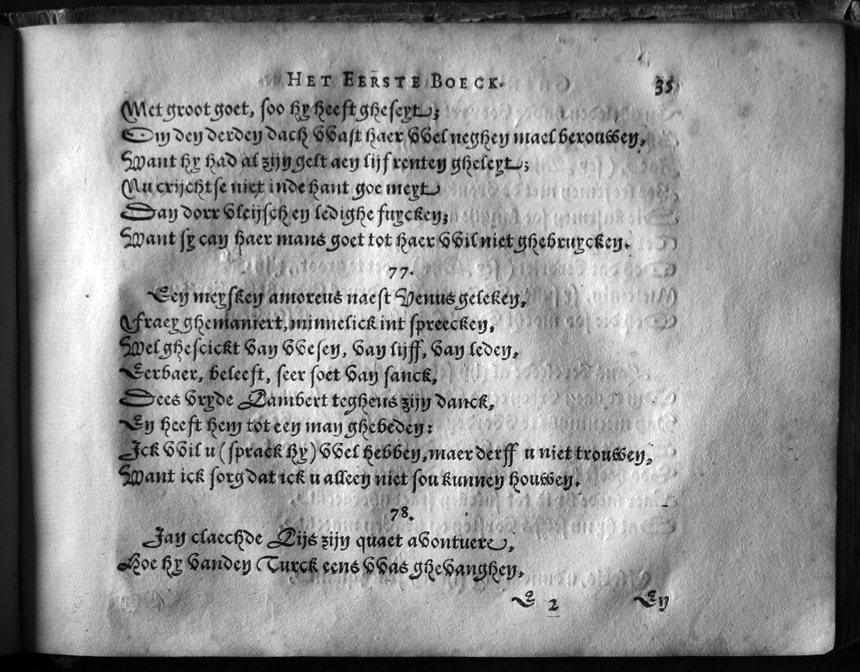 HET EERSTE BOECK.
35
Met groot goet, soo hy heeft gheseyt;
Om den derden dach wast haer wel neghen mael berouwen,
Want hy had al zijn gelt aen lijfrenten gheleyt;
Nu crijchtse niet inde hant goe meyt
Dan dorr vleijsch en ledighe fuycken;
Want sy can haer mans goet tot haer wil niet ghebruycken.
77.
Een meysken amoreus naest Venus geleken,
Fraey ghemaniert, minnelick int spreecken,
Wel ghescickt van wesen, van lijff, van leden,
Eerbaer, beleeft, seer soet van sanck,
Dees vryde Lambert teghens zijn danck,
En heeft hem tot een man ghebeden:
Ick wil u (sprack hy) wel hebben, maer derff u niet trouwen,
Want ick sorg dat ick u alleen niet sou kunnen houwen.
78.
Jan claechde Lijs zijn quaet avontuere,
Hoe hy vanden Turck eens was ghevanghen,
E 2
En